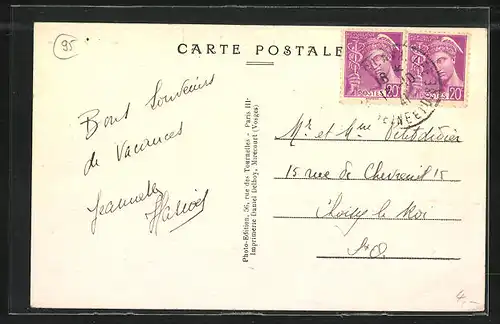 95
CARTE POSTALE
POSTES 20c
POSTES 20c
Bons Souvenirs
de Vacances
Jeannette
Photo-Edition, 36, rue des Tournelles - Paris III e
Imprimerie Daniel Delboy, Mirecourt (Vosges)
Mr et Mme Petitdidier
15 rue de Chevreul 15
Choisy le Roi
S-O.
4,-